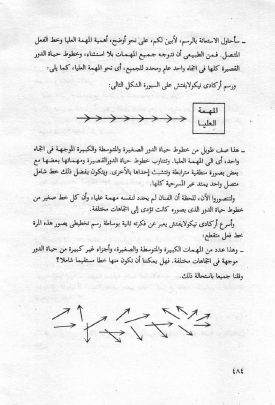 ـ سأحاول الاستعانة بالرسم، لأبين لكم، على نحو أوضح، أهمية المهمة العليا وخط الفعل
المتصل. فمن الطبيعى أن تتوجه جميع المهمات بلا استثناء، وخطوط حياة الدور
القصيرة كلها فى اتجاه واحد عام ومحدد للجميع، أى نحو المهمة العليا، كما يلى:
ورسم أركادى نيكولايفتش على السبورة الشكل التالى:
المهمة
العليا
ـ هذا صف طويل من خطوط حياة الدور الصغيرة والمتوسطة والكبيرة الموجهة فى اتجاه
واحد، أى الى المهمة العليا. وتتناوب خطوط حياة الدور القصيرة ومهماتها بعضها مع
بعض بصورة منطقية مترابطة وتتشبث إحداها بالأخرى. ويتكون بفضل ذلك خط شامل
متصل واحد يمتد عبر المسرحية كلها.
ولتتصوروا الآن، للحظة أن الفنان لم يحدد لنفسه مهمة عليا، وأن كل خط صغير من
خطوط حياة الدور الذى يصوره كانت تؤدى إلى اتجاهات مختلفة.
وأسرع أركادى نيكولايفتش يعبر عن فكرته ثانية بوساطة رسم تخطيطى يصور هذه المرة
خط فعل متقطع:
ـ وهذا عدد من المهمات الكبيرة والمتوسطة والصغيرة، وأجزاء غير كبيرة من حياة الدور
موجهة فى اتجاهات مختلفة. فهل يمكننا أن نكون منها خطا مستقيما شاملا؟
وقلنا جميعا باستحالة ذلك.
٤٨٤